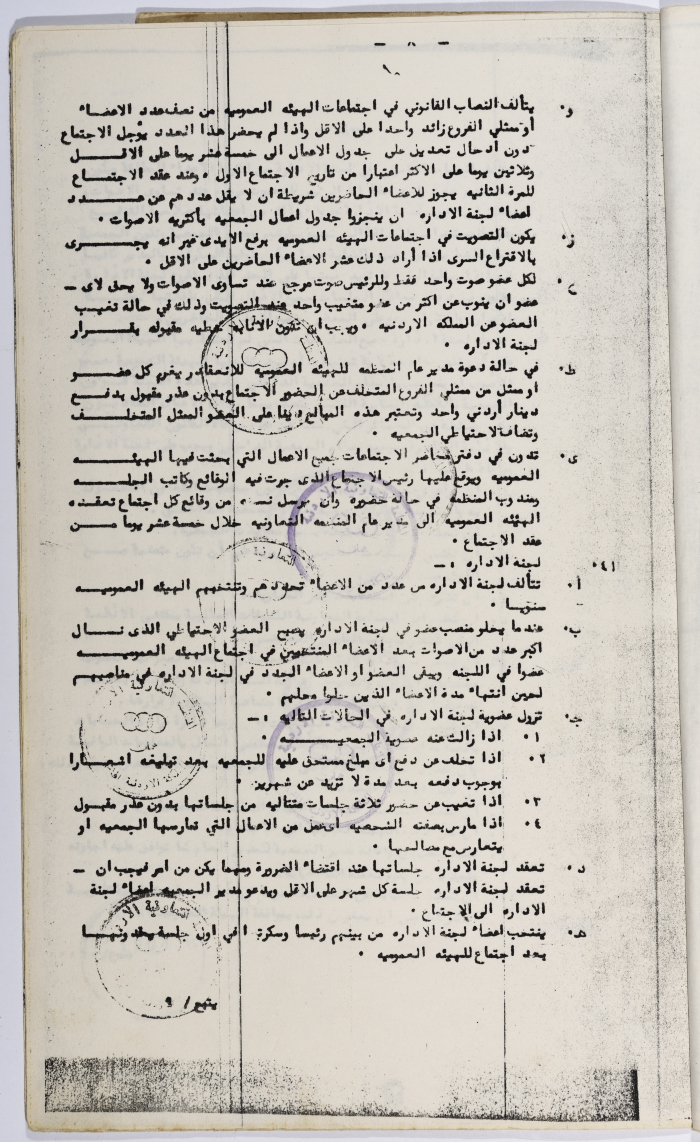 - ٨ -
١٠
و. يتألف النصاب القانوني في اجتماعات الهيئه العموميه من نصف عدد الاعضاء
أو ممثلي الفروع زائد واحدا على الاقل واذا لم يحضر هذا العدد يؤجل الاجتماع
دون ادخال تعديل على جدول الاعمال الى خمسة عشر يوما على الاقل
وثلاثين يوما على الاكثر اعتبارا من تاريخ الاجتماع الاول . وعند عقد الاجتماع
للمرة الثانيه يجوز للاعضاء الحاضرين شريطة ان لا يقل عددهم عن عدد
اعضاء لجنة الاداره ان ينجزوا جدول اعمال الجمعيه بأكثريه الاصوات .
ز. يكون التصويت في اجتماعات الهيئه العموميه برفع الايدى غير انه يجرى
بالاقتراع السرى اذا أراد ذلك عشر الاعضاء الحاضرين على الاقل .
ح. لكل عضو صوت واحد فقط وللرئيس صوت مرجح عند تساوى الاصوات ولا يحق لاى -
عضو ان ينوب عن اكثر من عضو متغيب واحد عند التصويت وذلك في حالة تغيب
العضو عن المملكه الاردنيه . ويجب ان تكون الانابه خطيه مقبوله بقرار
لجنة الاداره .
ط. في حالة دعوة مدير عام المنظمه للهيئه العموميه للانعقاد يغرم كل عضو
او ممثل من ممثلي الفروع المتخلف عن الحضور الاجتماع بدون عذر مقبول بدفع
دينار أردني واحد وتعتبر هذه المبالغ دينا على العضو الممثل المتخلف
وتضاف لاحتياطي الجمعيه .
ى. تدون في دفتر محاضر الاجتماعات جميع الاعمال التي بحثت فيها الهيئه
العموميه ويوقع عليها رئيس الاجتماع الذى جرت فيه الوقائع وكاتب الجلسه
ومندوب المنظمه في حالة حضوره وان يرسل نسخه من وقائع كل اجتماع تعقده
الهيئه العموميه الى مدير عام المنظمه التعاونيه خلال خمسة عشر يوما من
عقد الاجتماع .
٤١. لجنة الاداره :-
أ. تتألف لجنة الاداره من عدد من الاعضاء تحددهم وتنتخبهم الهيئه العموميه
سنويا .
ب. عندما يخلو منصب عضو في لجنة الاداره يصبح العضو الاحتياطي الذى نال
اكبر عدد من الاصوات بعد الاعضاء المنتخبين في اجتماع الهيئه العموميه
عضوا في اللجنه ويبقى العضو او الاعضاء الجدد في لجنة الاداره في مناصبهم
لحين انتهاء مدة الاعضاء الذين حلوا محلهم .
جـ. تزول عضوية لجنة الاداره في الحالات التاليه :-
١. اذا زالت عنه عضوية الجمعيه .
٢. اذا تخلف عن دفع اى مبلغ مستحق عليه للجمعيه بعد تبليغه اشعارا
بوجوب دفعه بعد مدة لا تزيد عن شهرين .
٣. اذا تغيب عن حضور ثلاثة جلسات متتاليه من جلساتها بدون عذر مقبول
٤. اذا مارس بصفته الشخصيه اى عمل من الاعمال التي تمارسها الجمعيه او
يتعارض مع مصالحها .
د. تعقد لجنة الاداره جلساتها عند اقتضاء الضرورة ومهما يكن من امر فيجب ان -
تعقد لجنة الاداره جلسة كل شهر على الاقل ويدعو مدير الجمعيه اعضاء لجنة
الاداره الى الاجتماع .
هـ. ينتخب اعضاء لجنة الاداره من بينهم رئيسا وسكرتيرا في اول جلسة يعقدونها
بعد اجتماع للهيئه العموميه .
يتبع / ٩